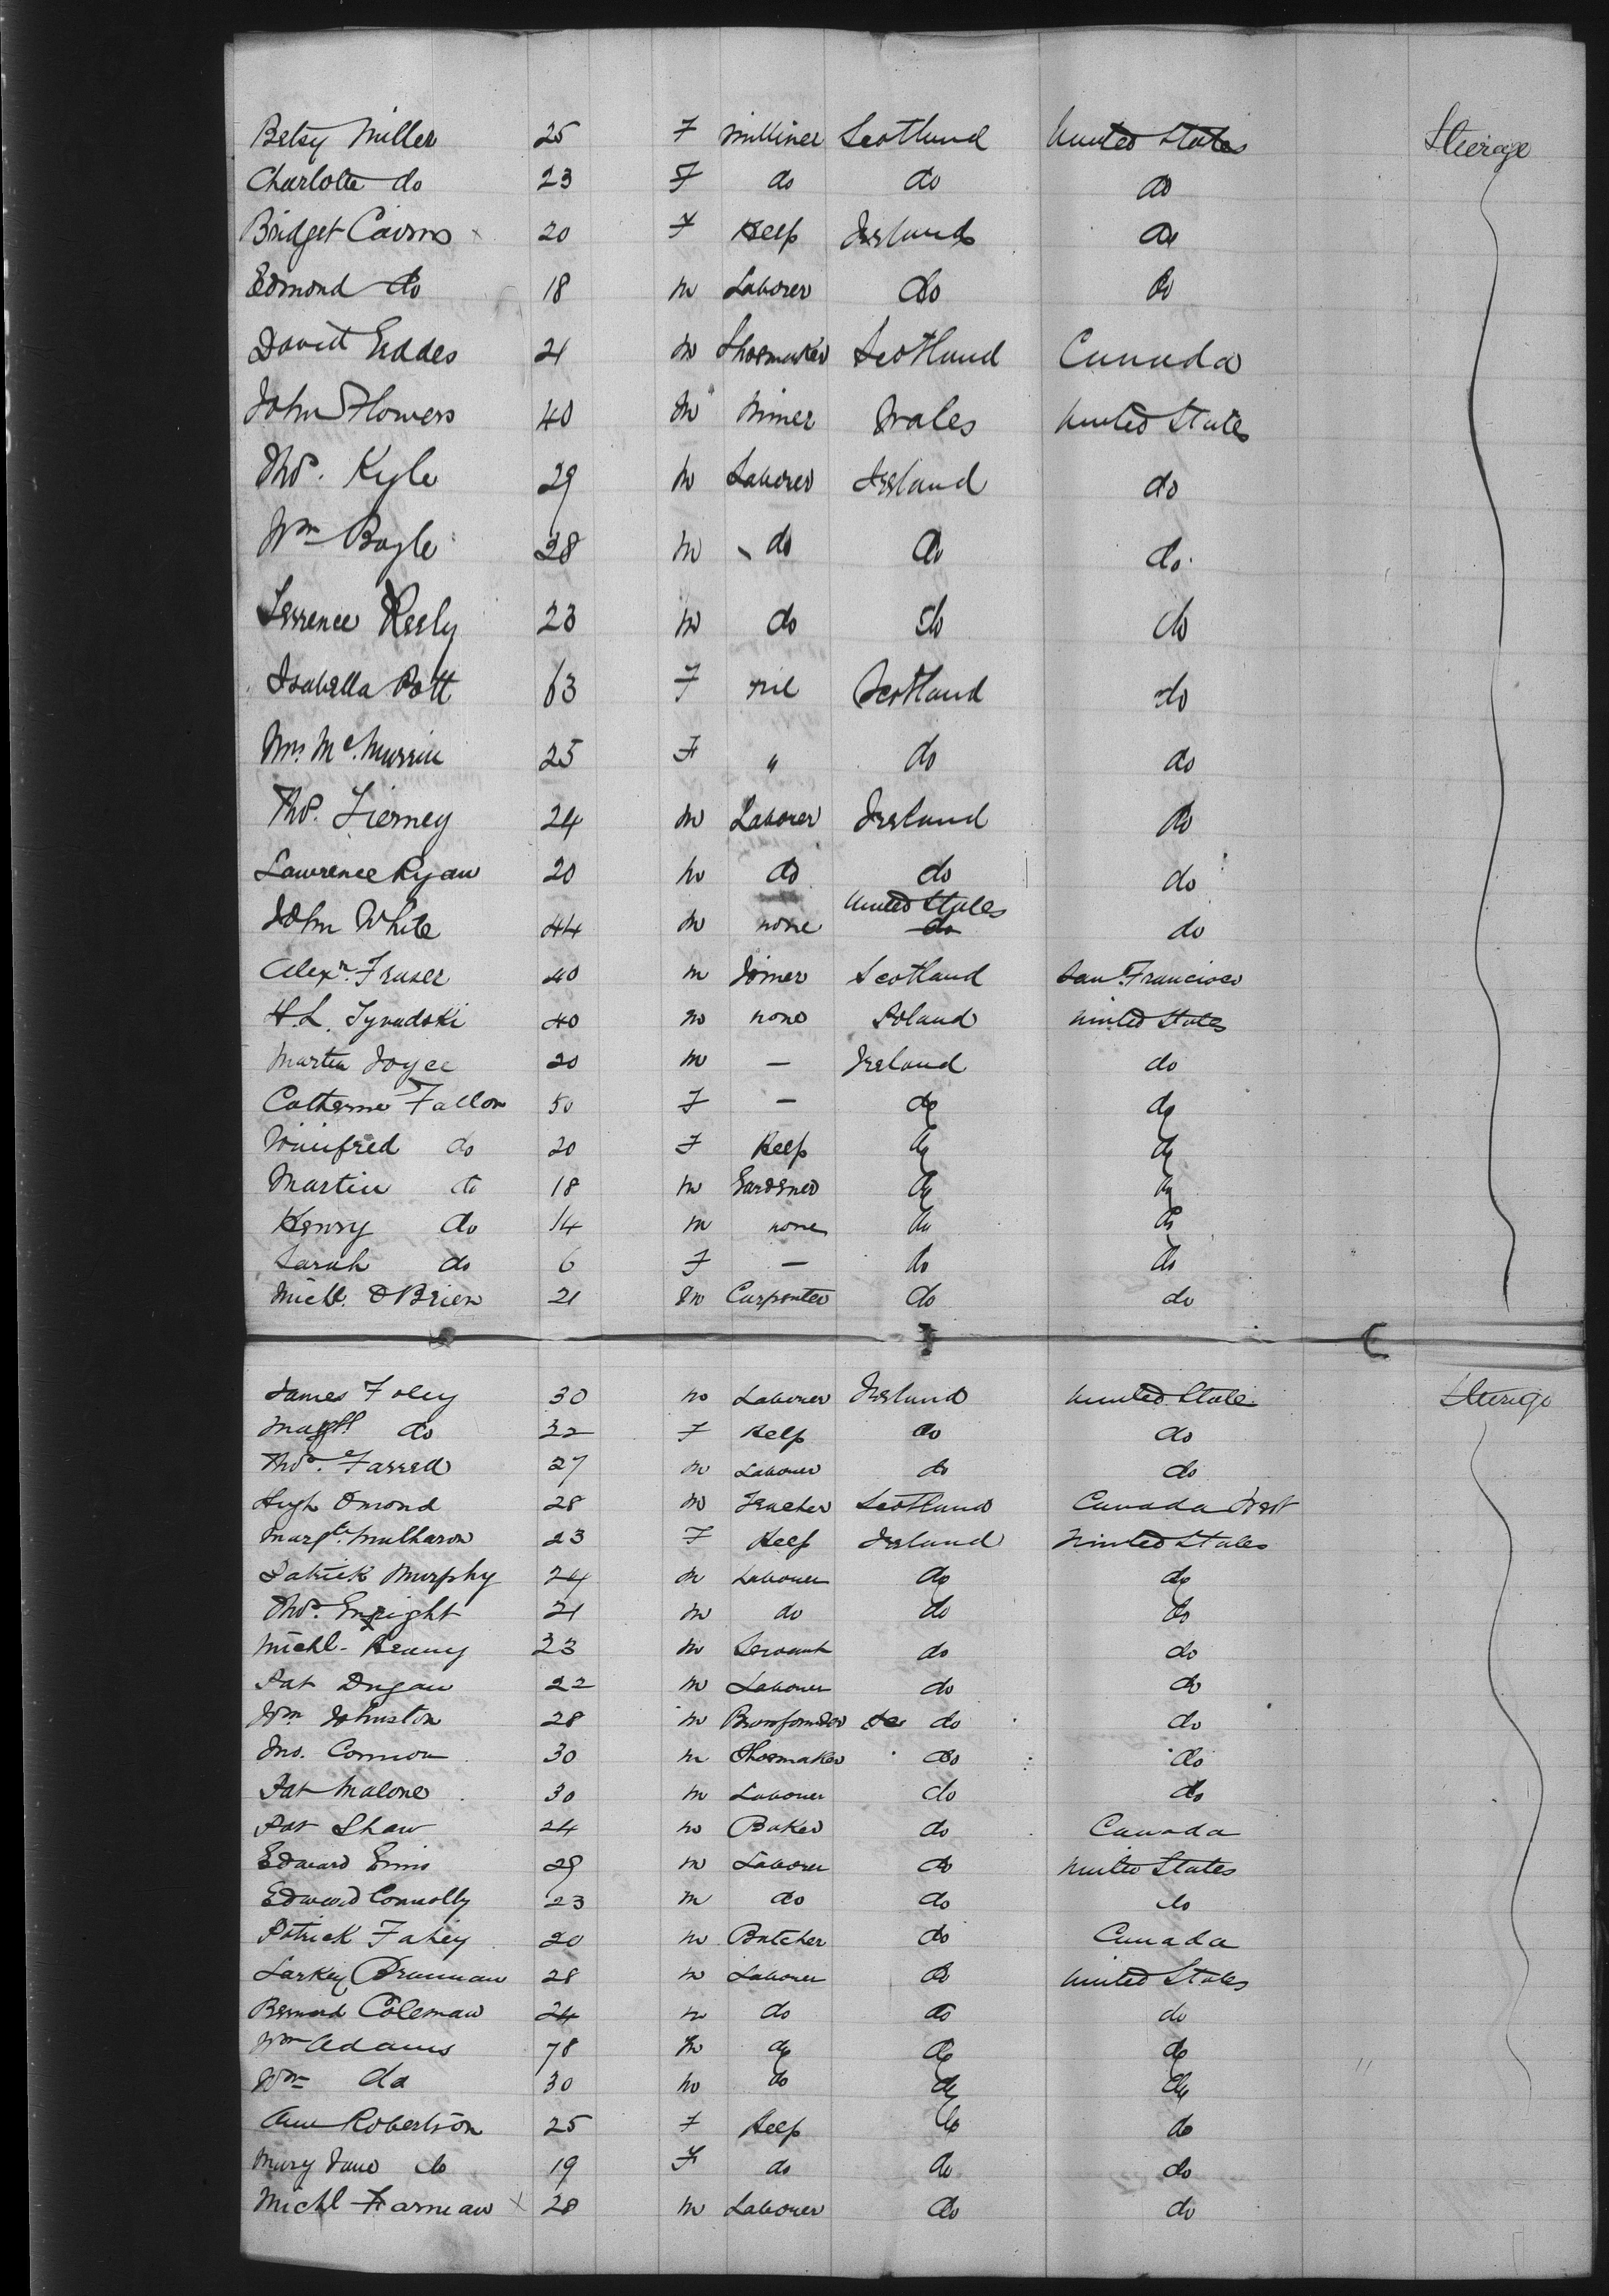 Betsy Miller 25 F Milliner Scotland United States Steerage
Charlotte do 23 F do do do
Bridget Cairns x 20 F Help Ireland do
Edmond do 18 m Laborer do do
David Eaddes 21 m Shoemaker Scotland Canada
John Flowers 40 m Miner Wales United States
Thos. Kyle 29 m Laborer Ireland do
Wm Boyle 28 m do do do
Terrence Reely 23 m do do do
Isabella Pott 63 F nil Scotland do
Mrs. McMurrin 25 F " do do
Thos. Tierney 24 m Laborer Ireland do
Lawrence Ryan 20 m do do do
John White 44 m none United States do
Alexr. Fraser 40 m Joiner Scotland San Francisco
H. L. 40 m none Poland United States
Martin Joyce 20 m — Ireland do
Catherine Fallon 50 F — do do
Winifred do 20 F Help do do
Martin do 18 m Gardener do do
Henry do 14 m none do do
Sarah do 6 F — do do
Michl. O'Brien 21 m Carpenter do do
James Foley 30 m Laborer Ireland United State Steerage
do 32 F Help do do
Thos. Farrell 27 m Laborer do do
Hugh Omond 28 m Teacher Scotland Canada West
Margt. Mulharon 23 F Help Ireland United States
Patrick Murphy 24 m Laborer do do
Thos. Enright 21 m do do do
Michl. Heany 23 m Servant do do
Pat Dugan 22 m Laborer do do
Wm. Johnston 28 m do do
Jno. Connon 30 m Shoemaker do do
Pat Malone 30 m Laborer do do
Pat Shaw 24 m Baker do Canada
Edward Ennis 29 m Laborer do United States
Edward Connolly 23 m do do do
Patrick Fahey 20 m Butcher do Canada
Larkey Brannan 28 m Laborer do United States
Bernard Coleman 24 m do do do
Wm Adams 78 m do do do
Wm do 30 m do do do
Ann Robertson 25 F Help do do
Mary Jane do 19 F do do do
Michl Farnan x 28 m Laborer do do